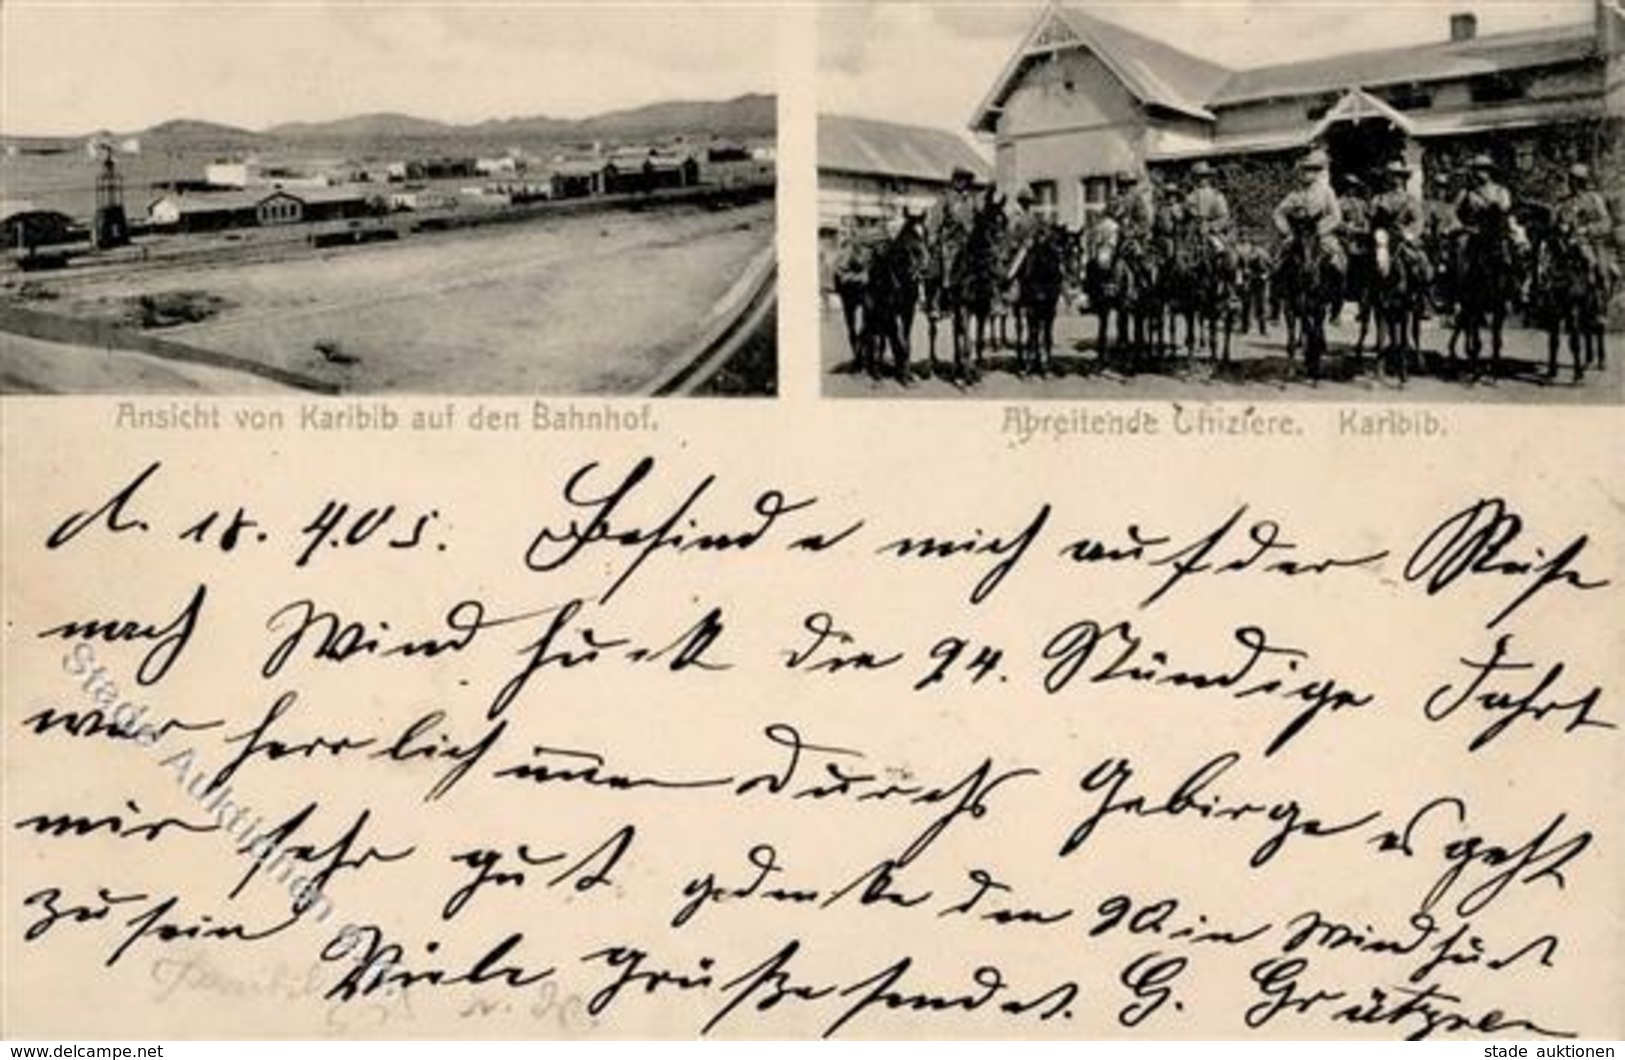 Ansicht von Karibib auf den Bahnhof.
Abreitende Offiziere. Karibib.
d. 18. 4. 05. Befinde mich auf der Reise
nach Windhuck die 24. Stündige Fahrt
war herrlich immer durchs Gebirge es geht
mir sehr gut gedenke den 20 in Windhuck
zu sein Viele Grüße sendet. G.
Stade Auktionen
www.delcampe.net
stade auktionen